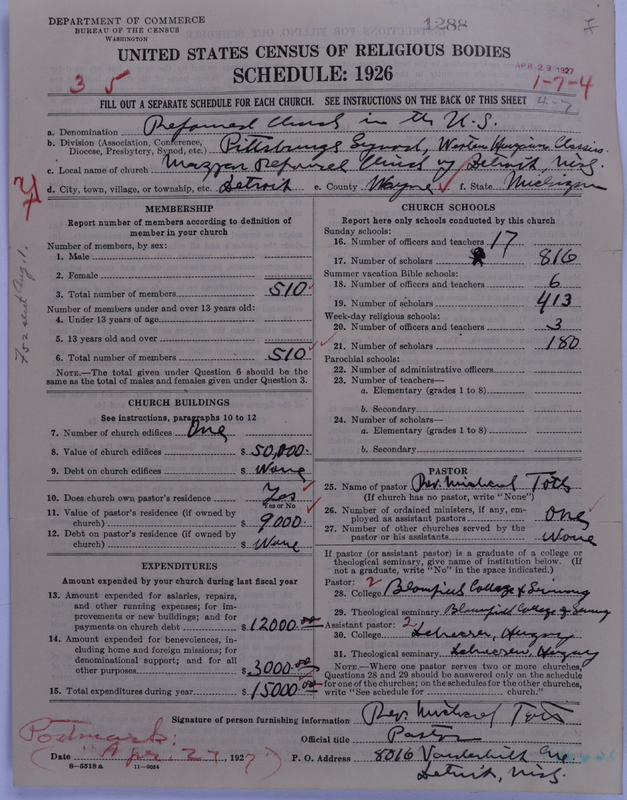 DEPARTMENT OF COMMERCE
BUREAU OF THE CENSUS
WASHINGTON
1288
I
UNITED STATES CENSUS OF RELIGIOUS BODIES
SCHEDULE: 1926
APR 29 1927
3 5
1-7-4
FILL OUT A SEPARATE SCHEDULE FOR EACH CHURCH. SEE INSTRUCTIONS ON THE BACK OF THIS SHEET
4-7
a. Denomination Reformed Church in the U.S.
b. Division (Association, Conference, Diocese, Presbytery, Synod, etc.) Pittsburgh Synod, Western Hungarian Classis
c. Local name of church Magyar Reformed Church of Detroit, Mich.
d. City, town, village, or township, etc. Detroit e. County Wayne f. State Michigan
752 sent Aug. 1.
MEMBERSHIP
Report number of members according to definition of member in your church
Number of members, by sex:
1. Male
2. Female
3. Total number of members 510
Number of members under and over 13 years old:
4. Under 13 years of age
5. 13 years old and over
6. Total number of members 510
NOTE.—The total given under Question 6 should be the same as the total of males and females given under Question 3.
CHURCH BUILDINGS
See instructions, paragraphs 10 to 12
7. Number of church edifices One
8. Value of church edifices $ 50,000.
9. Debt on church edifices $ None
10. Does church own pastor's residence Yes
Yes or No
11. Value of pastor's residence (if owned by church) $ 9000.
12. Debt on pastor's residence (if owned by church) $ None
EXPENDITURES
Amount expended by your church during last fiscal year
13. Amount expended for salaries, repairs, and other running expenses; for improvements or new buildings; and for payments on church debt $ 12000.00
14. Amount expended for benevolences, including home and foreign missions; for denominational support; and for all other purposes $ 3000.00
15. Total expenditures during year $ 15000.00
CHURCH SCHOOLS
Report here only schools conducted by this church
Sunday schools:
16. Number of officers and teachers 17
17. Number of scholars 816
Summer vacation Bible schools:
18. Number of officers and teachers 6
19. Number of scholars 413
Week-day religious schools:
20. Number of officers and teachers 3
21. Number of scholars 180
Parochial schools:
22. Number of administrative officers
23. Number of teachers—
a. Elementary (grades 1 to 8)
b. Secondary
24. Number of scholars—
a. Elementary (grades 1 to 8)
b. Secondary
PASTOR
25. Name of pastor Rev. Michael Toth
(If church has no pastor, write "None")
26. Number of ordained ministers, if any, employed as assistant pastors One
27. Number of other churches served by the pastor or his assistants None
If pastor (or assistant pastor) is a graduate of a college or theological seminary, give name of institution below. (If not a graduate, write "No" in the space indicated.)
Pastor: 2
28. College Bloomfield College & Seminary
29. Theological seminary Bloomfield College & Seminary
Assistant pastor: 2
30. College Debreczen, Hungary
31. Theological seminary Debreczen, Hungary
NOTE.—Where one pastor serves two or more churches, Questions 28 and 29 should be answered only on the schedule for one of the churches; on the schedules for the other churches, write "See schedule for church."
Signature of person furnishing information Rev. Michael Toth
Official title Pastor
Postmark:
Date Apr. 27, 1927
P. O. Address 8016 Vanderbilt Ave
Detroit, Mich.
8—5518a 11—9024